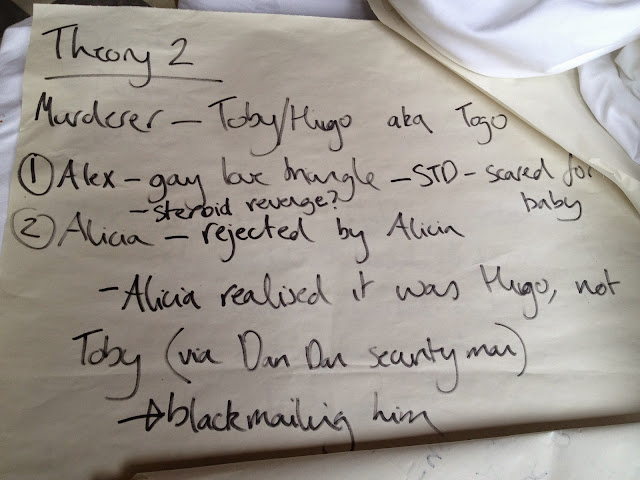 Theory 2
Murderer – Toby/Hugo aka Togo
① Alex – gay love triangle – STD – scared for baby
– steroid revenge?
② Alicia – rejected by Alicia
– Alicia realised it was Hugo, not
Toby (via Dan Dan security man)
→ blackmailing him